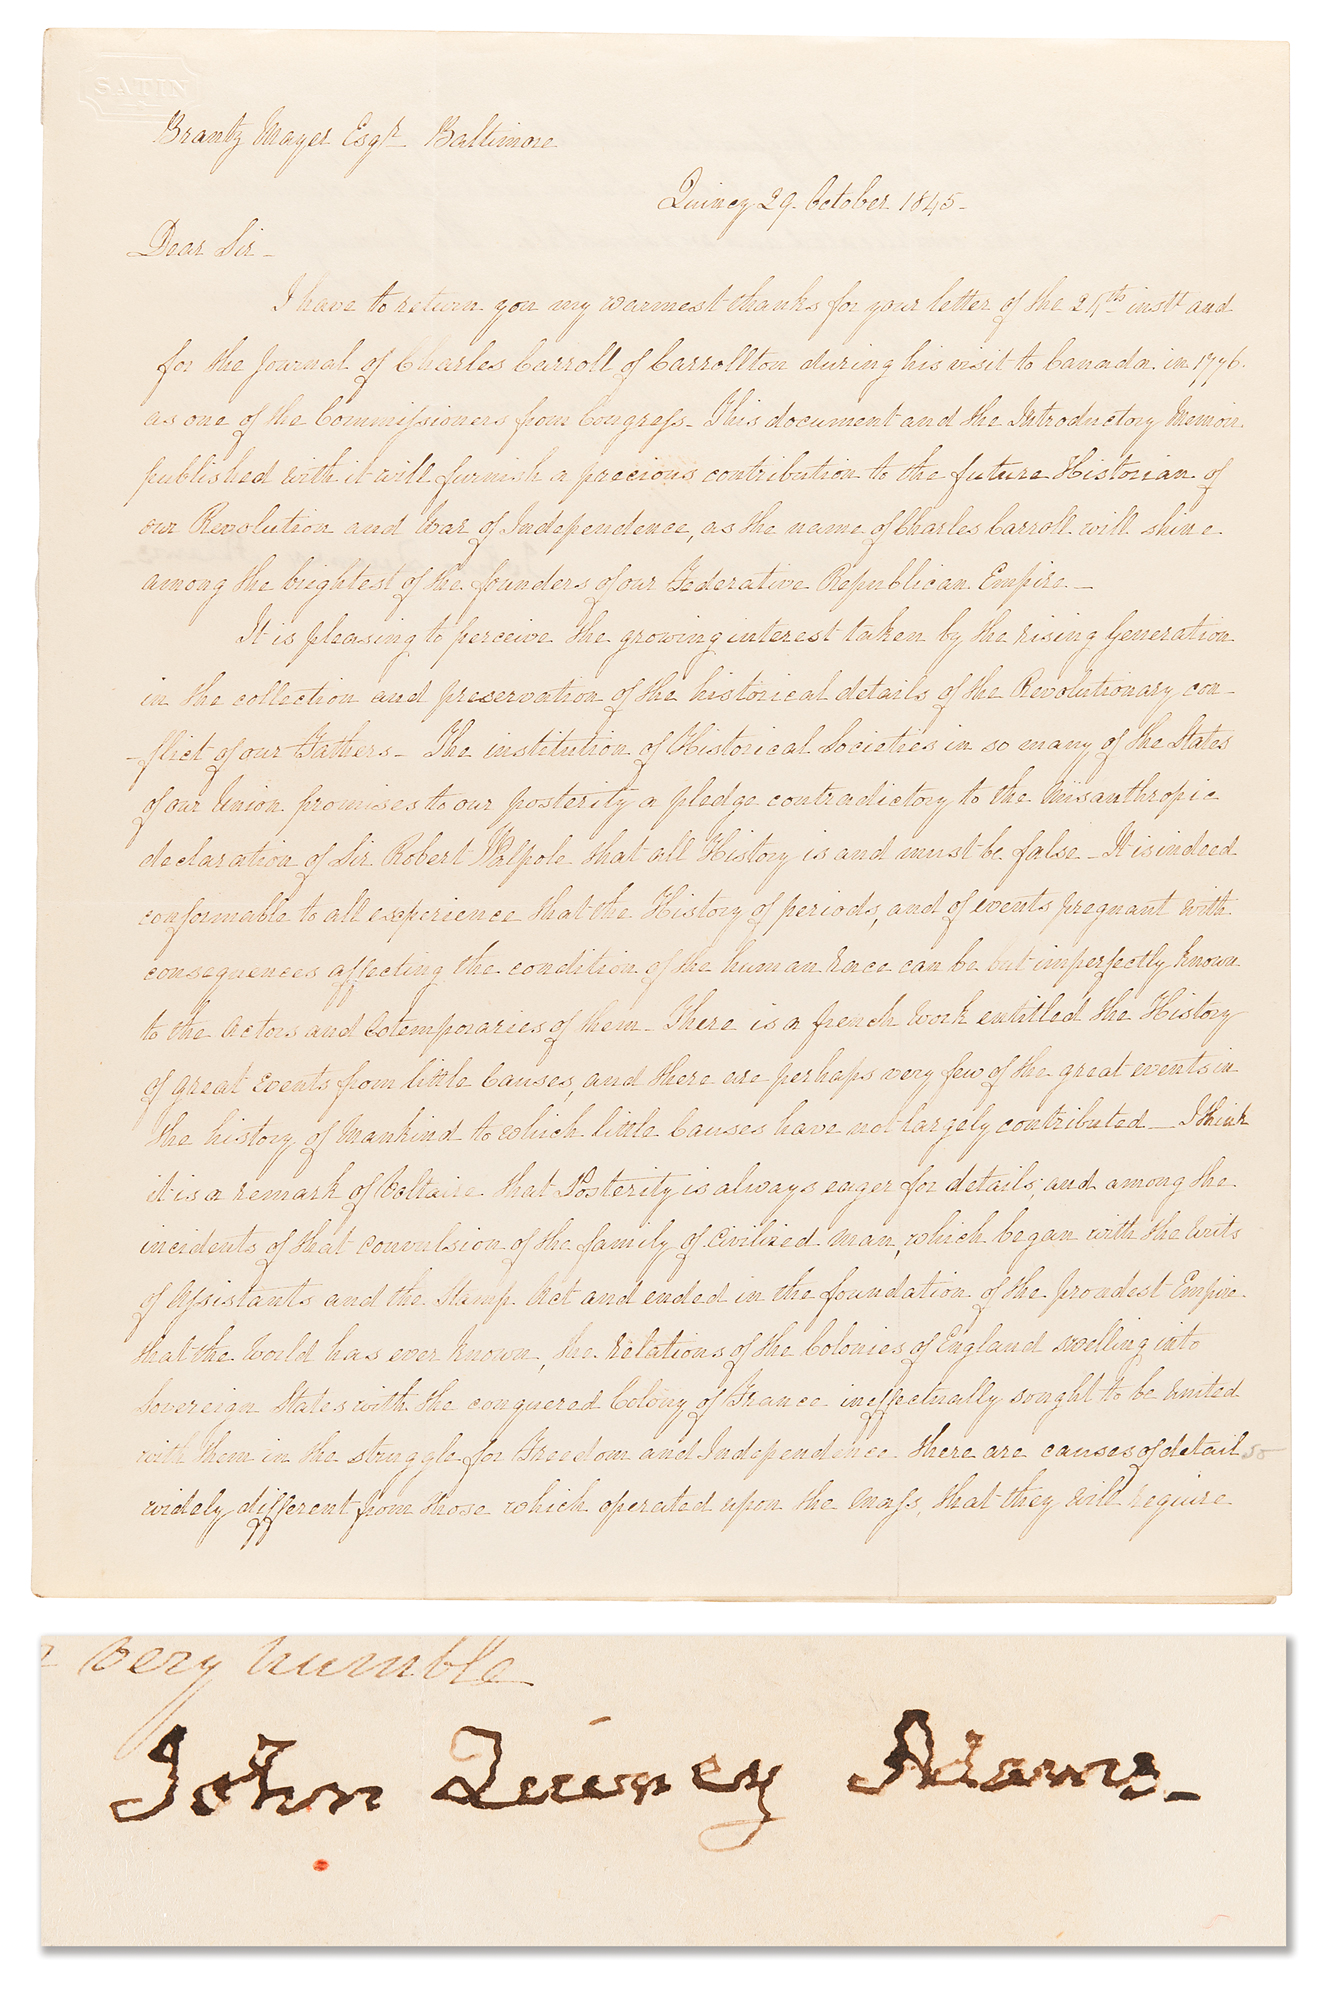 SATIN
Brantz Mayer Esqr. Baltimore
Quincy 29. October 1845-
Dear Sir -
I have to return you my warmest thanks for your letter of the inst and
for the Journal of Charles Carroll of Carrollton during his visit to Canada in 1776.
as one of the Commissioners from Congress- This document and the Introductory Memoir
published with it will furnish a precious contribution to the future Historian of
our Revolution and War of Independence, as the name of Charles Carroll will shine
among the brightest of the founders of our Federative Republican Empire.-
It is pleasing to perceive the growing interest taken by the rising Generation
in the collection and preservation of the historical details of the Revolutionary con-
-flict of our Fathers- The institution of Historical Societies in so many of the States
of our Union promises to our posterity a pledge contradictory to the Misanthropic
declaration of Sir Robert Walpole that all History is and must be false - It is indeed
conformable to all experience that the History of periods, and of events pregnant with
consequences affecting the condition of the human Race can be but imperfectly known
to the Actors and Cotemporaries of them- There is a french Work entitled the History
of great Events from little Causes, and there are perhaps very few of the great events in
the history of Mankind to which little Causes have not largely contributed- I think
it is a remark of Voltaire that Posterity is always eager for details, and among the
incidents of that convulsion of the family of Civilized Man, which began with the Writs
of Assistants and the Stamp Act and ended in the foundation of the proudest Empire
that the World has ever known, the Relations of the Colonies of England swelling into
Sovereign States with the conquered Colony of France ineffectually sought to be United
with them in the struggle for Freedom and Independence there are causes of detail so
widely different from those which operated upon the Mass, that they will require
very humble
John Quincy Adams-